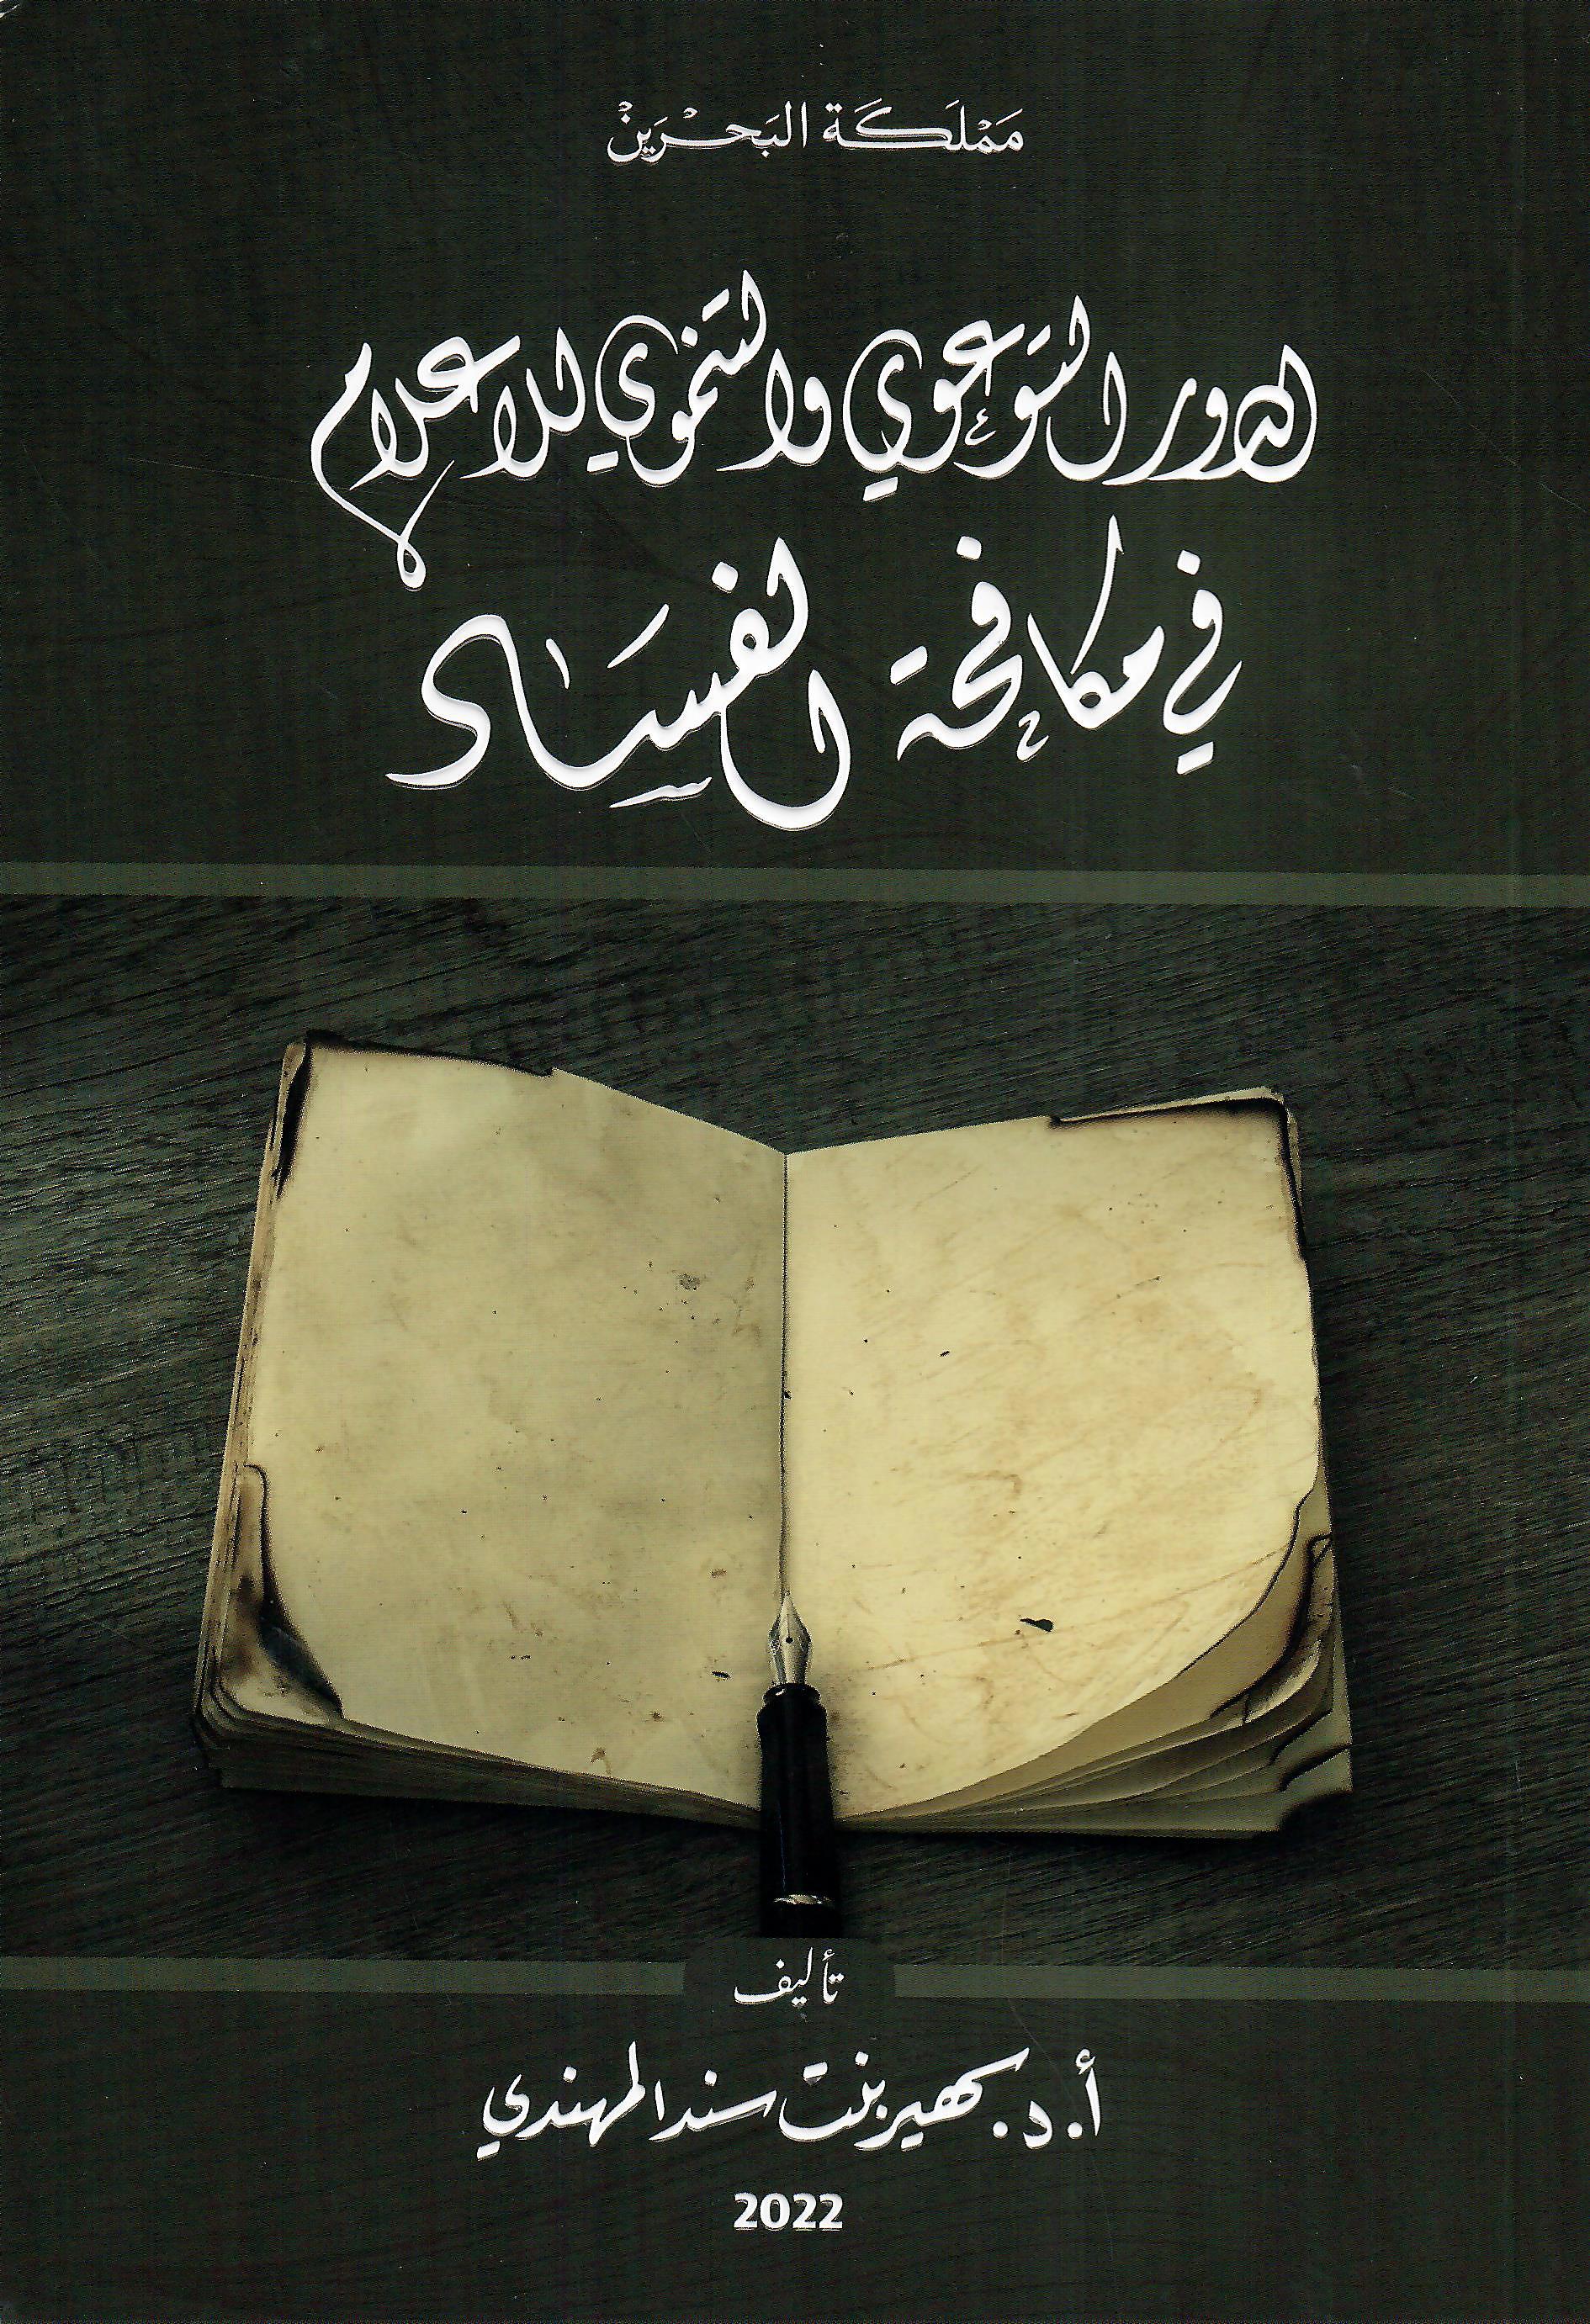 مَمْلَكَة البَحْرَيْن
الدور التوعوي والتنموي للاعلام
في مكافحة الفساد
تأليف
أ.د. سهير بنت سند المهندي
2022